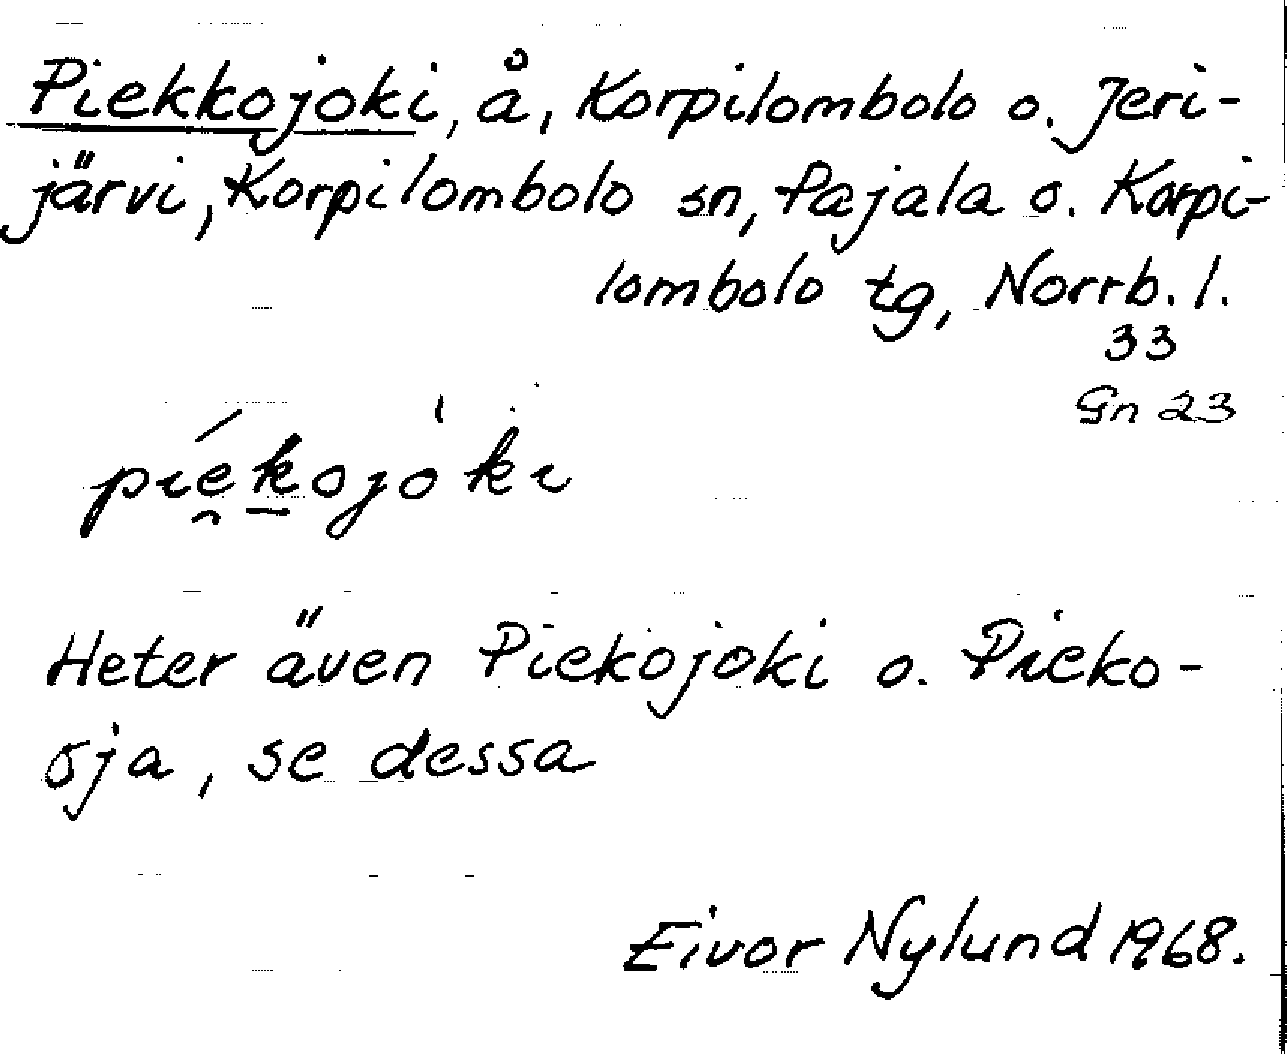 Piekkojoki, å, Korpilombolo o. Jeri-
järvi, Korpilombolo sn, Pajala o. Korpi-
lombolo tg, Norrb. l.
33
Gn 23
pɪé̯k̲ojò kɪ
Heter även Piekojoki o. Pieko-
oja, se dessa
Eivor Nylund 1968.